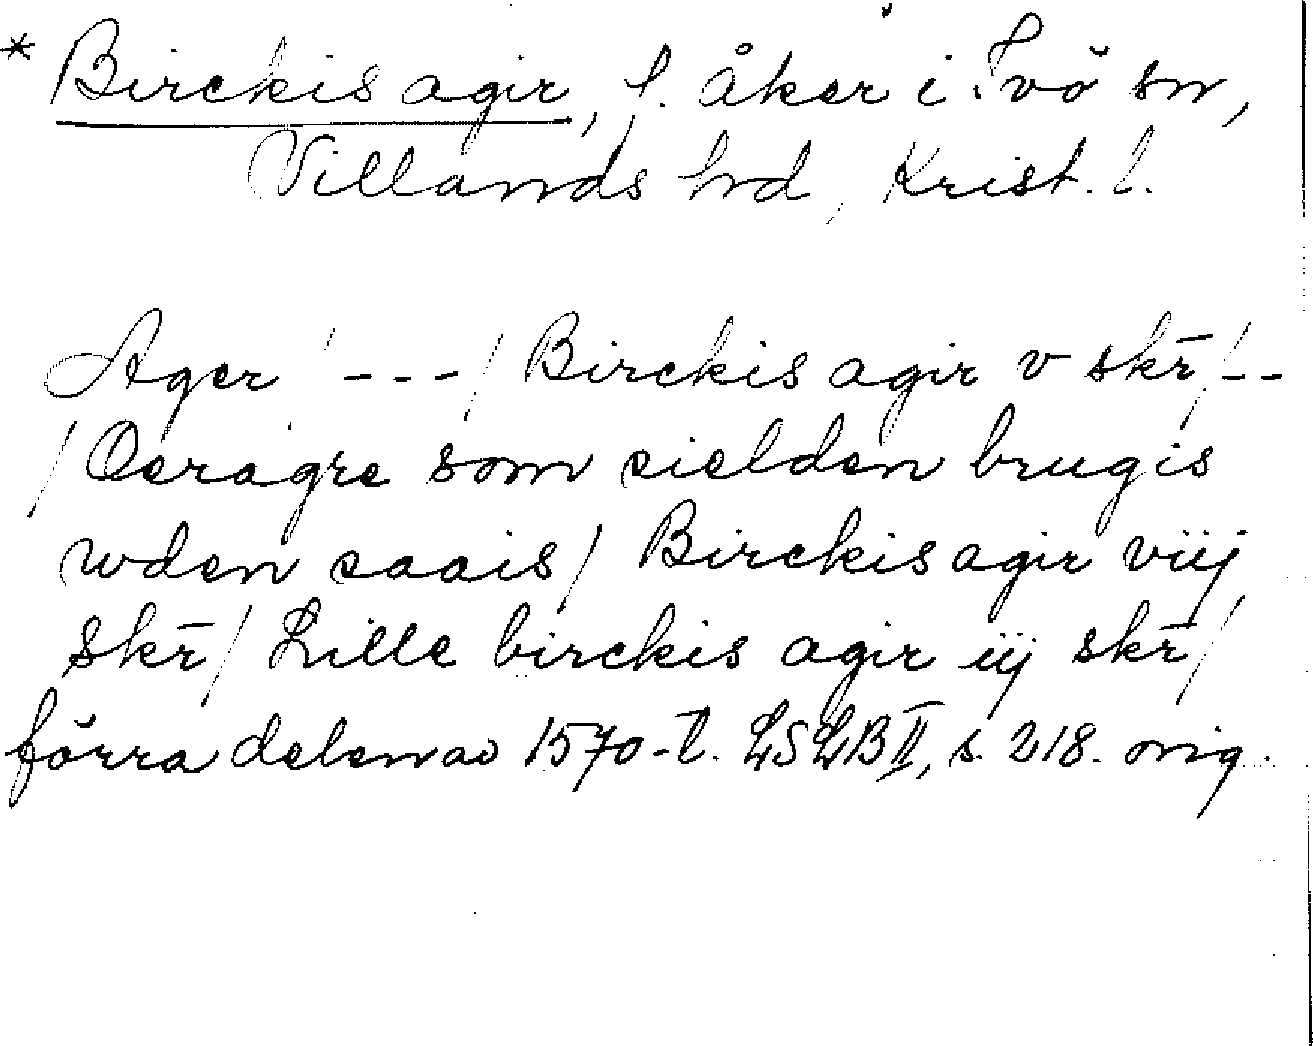 * Birckis agir, f. åker i Ivö sn,
Villands hrd, Krist. l.
Ager --- / Birckis agir v skr̄ / --
/ Öeragre som sielden brugis
wden saais / Birckis agir viij
skr̄ / Lille birckis agir iij skr̄ /
förra delen av 1570-t. LSLB II, s. 218. orig.